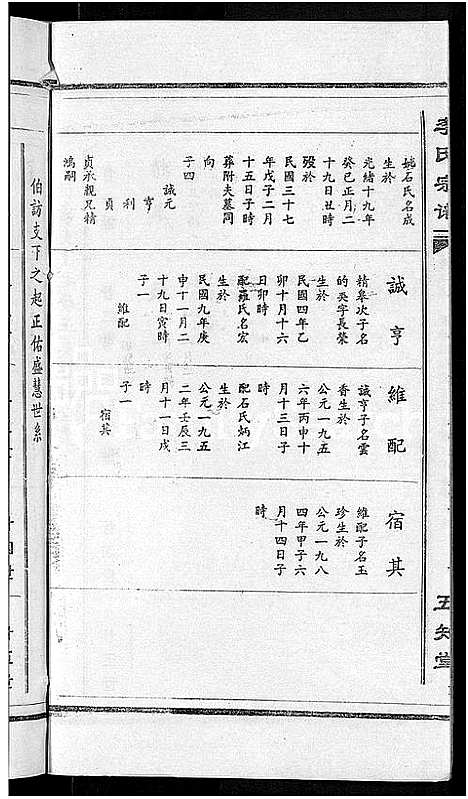 李氏宗譜
五知堂
姚石氏名成
生於
光緒十九年
癸巳正月二
十九日丑時
歿於
民國三十七
年戊子二月
十五日子時
葬附夫墓同
向
子四
誠元
亨
利
貞
貞承親兄精
鴻嗣
誠亨
精皋次子名
的英字長榮
生於
民國四年乙
卯十月十六
日卯時
配羅氏名宏
生於
民國九年庚
申十一月二
十九日寅時
子一
維配
維配
誠亨子名雲
香生於
公元一九五
六年丙申十
月十三日子
時
配石氏炳江
生於
公元一九五
二年壬辰三
月十一日戌
時
子一
宿其
宿其
維配子名玉
珍生於
公元一九八
四年甲子六
月十四日子
時
伯訪支下之起正佑盛慧世系